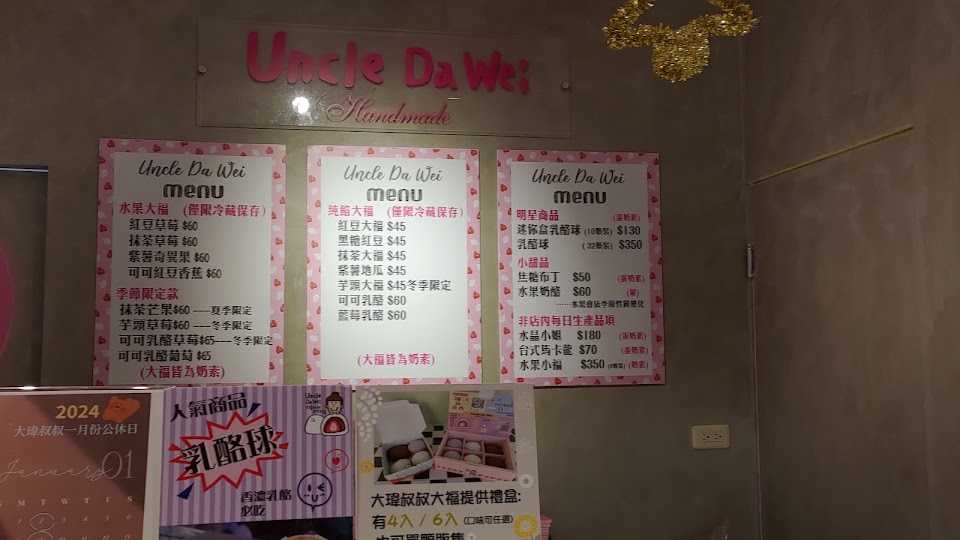 Uncle Da Wei
Handmade
Uncle Da Wei
menu
水果大福 (僅限冷藏保存)
紅豆草莓 $60
抹茶草莓 $60
紫薯奇異果 $60
可可紅豆香蕉 $60
季節限定款
抹茶芒果$60 ----夏季限定
芋頭草莓$60 ---冬季限定
可可乳酪草莓$65---冬季限定
可可乳酪葡萄 $65
(大福皆為奶素)
Uncle Da Wei
menu
純餡大福 (僅限冷藏保存)
紅豆大福 $45
黑糖紅豆 $45
抹茶大福 $45
紫薯地瓜 $45
芋頭大福 $45冬季限定
可可乳酪 $60
藍莓乳酪 $60
(大福皆為奶素)
Uncle Da Wei
menu
明星商品 (蛋奶素)
迷你盒乳酪球 (10顆裝) $130
乳酪球 (32顆裝) $350
小甜品
焦糖布丁 $50 (蛋奶素)
水果奶酪 $60 (葷)
-----水果會依季節性做變化
非店內每日生產品項
水晶小姐 $180 (蛋奶素)
台式馬卡龍 $70 (蛋奶素)
水果小福 $350 (奶素)
2024
大瑋叔叔一月份公休日
January 01
S M T W T F S
人氣商品
乳酪球
香濃乳酪
必吃
大瑋叔叔大福提供禮盒:
有4入/6入 (口味可任選)
也可單顆販售